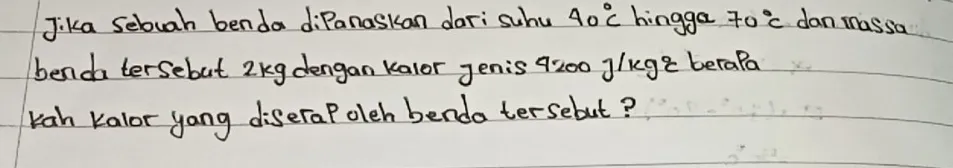 Jika sebuah benda dipanaskan dari suhu 40°c hingga 70°c dan massa
benda tersebut 2kg dengan kalor jenis 4200 J/kg°c berapa
kah kalor yang diserap oleh benda tersebut?